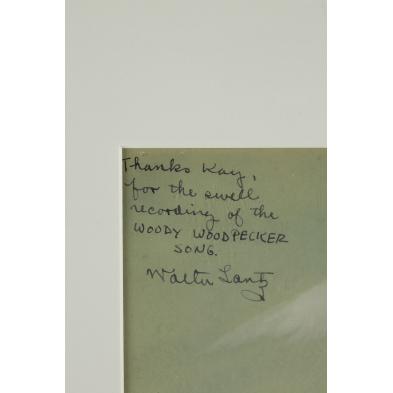 Thanks Kay,
for the swell
recording of the
WOODY WOODPECKER
SONG.
Walter Lantz